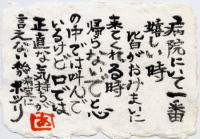 病院にいて一番
嬉しい時
皆がおみまいに
来てくれる時
帰らないでと心
の中では叫んで
いるけど口では
正直な気持ちが
言えな
あ